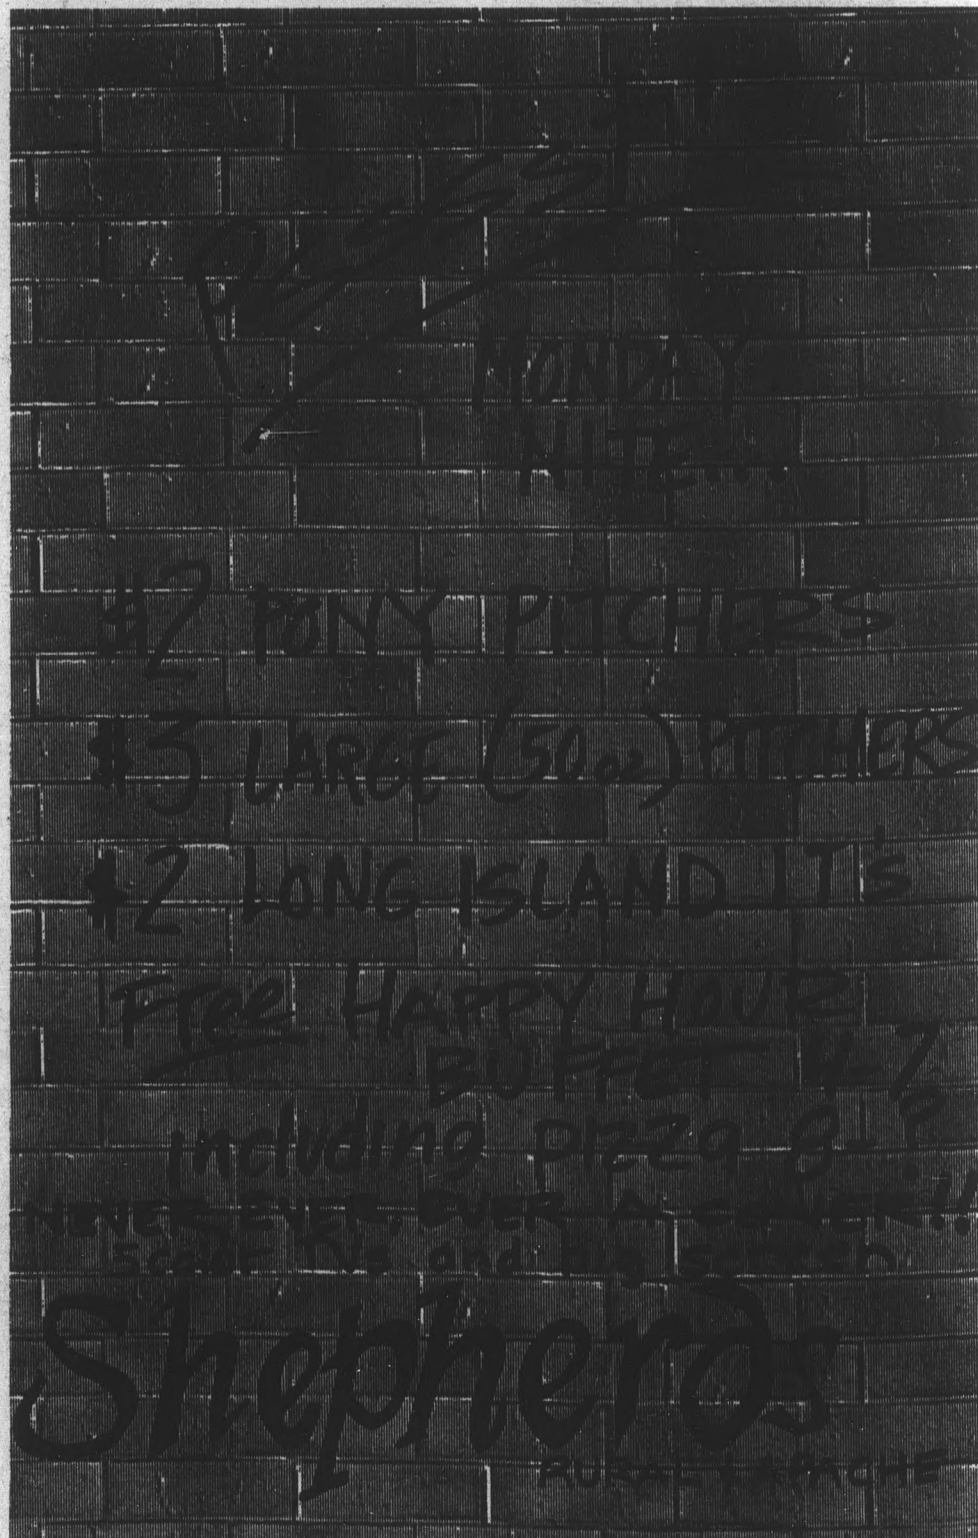 MONDAY
NITE...
$2 PONY PITCHERS
$3 LARGE (50 oz) PITCHERS
$2 LONG ISLAND IT's
Free HAPPY HOUR
BUFFET 4-7
including pizza &
NEVER, EVER, OVER A EVER!!
and Big Screen
Shepherds
RURAL + APACHE